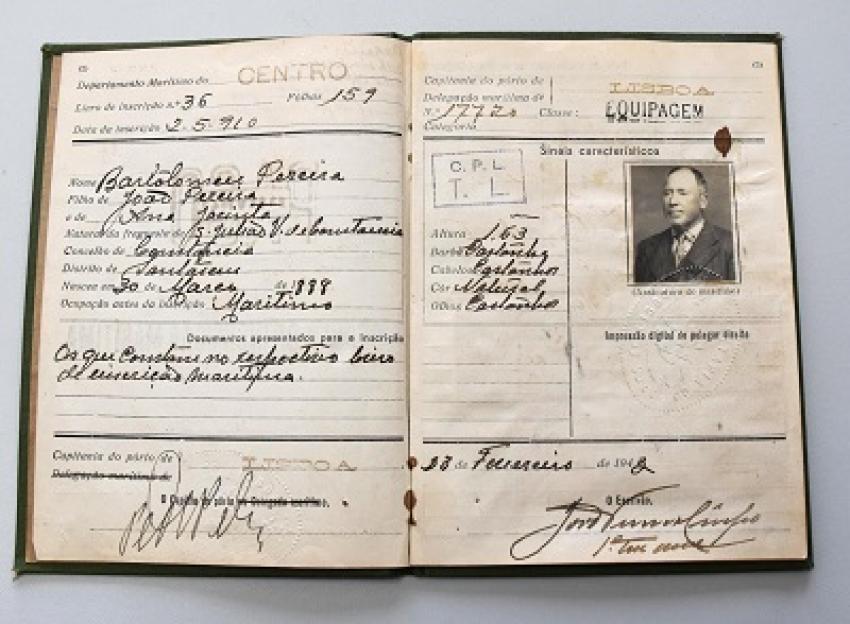 Departamento Marítimo do CENTRO
Livro de inscrição n.º 36 Folhas 159
Data da inscrição 2-5-910
Nome Bartolomeu Pereira
Filho de João Pereira
e de Ana Jacinta
Natural da freguesia de S. Julião V. de Constancia
Concelho de Constancia
Distrito de Santarem
Nasceu em 30 de Março de 1888
Ocupação antes da inscrição Maritimo
Documentos apresentados para a inscrição
Os que constam no respectivo livro
de inscrição maritima.
Capitania do pôrto de LISBOA
Delegação marítima de
O Capitão do pôrto ou Delegado marítimo,
Capitania do pôrto de LISBOA
Delegação marítima de
N.º 17720 Classe: EQUIPAGEM
Categoria
Sinais característicos
C. P. L
T. L
Altura 1,63
Barba Castanha
Cabelos Castanhos
Côr Natural
Olhos Castanhos
Assinatura do marítimo
Impressão digital do polegar direito
de Fevereiro de 194
O Escrivão,